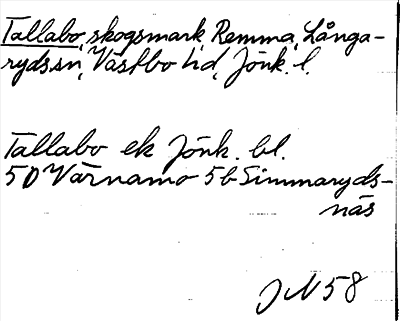 Tallabo, skogsmark, Remma, Långa-
rydssn, Västbo hd, Jönk. l.
Tallabo ek Jönk. bl.
5D Värnamo 5b Simmaryds-
näs
JN 58